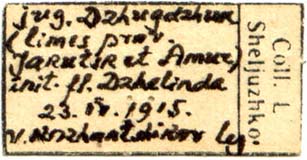 jug. Dzhugdzhur
(limes prov.
Jakutsk et Amur.)
init. fl. Dzhelinda
23. IV. 1915.
V. Kozhantshikov leg.
Coll. L.
Sheljuzhko.